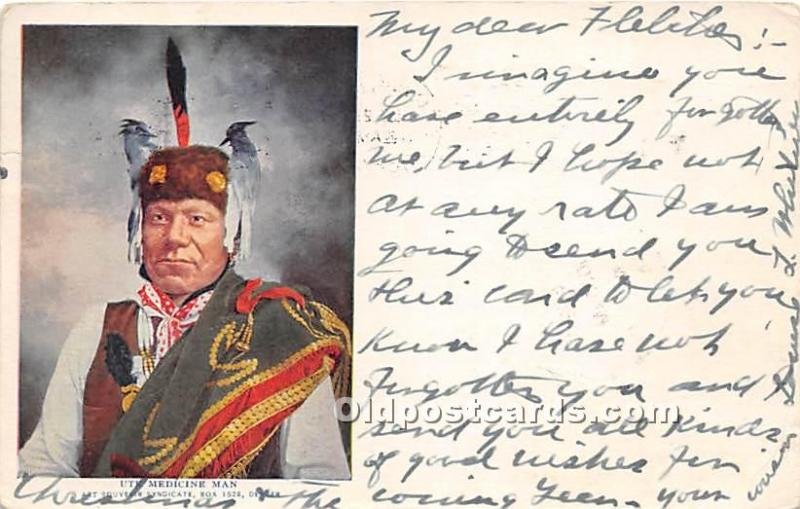 My dear Fletcher:-
I imagine you
have entirely forgotten
me, but I hope not
at any rate I am
going to send you
this card to let you
know I have not
forgotten you and I
send you all kinds
of good wishes for
Christmas & the coming Year. your
cousin Louise L.
UTE MEDICINE MAN
ART SOUVENIR SYNDICATE, BOX 1528, DENVER
Oldpostcards.com